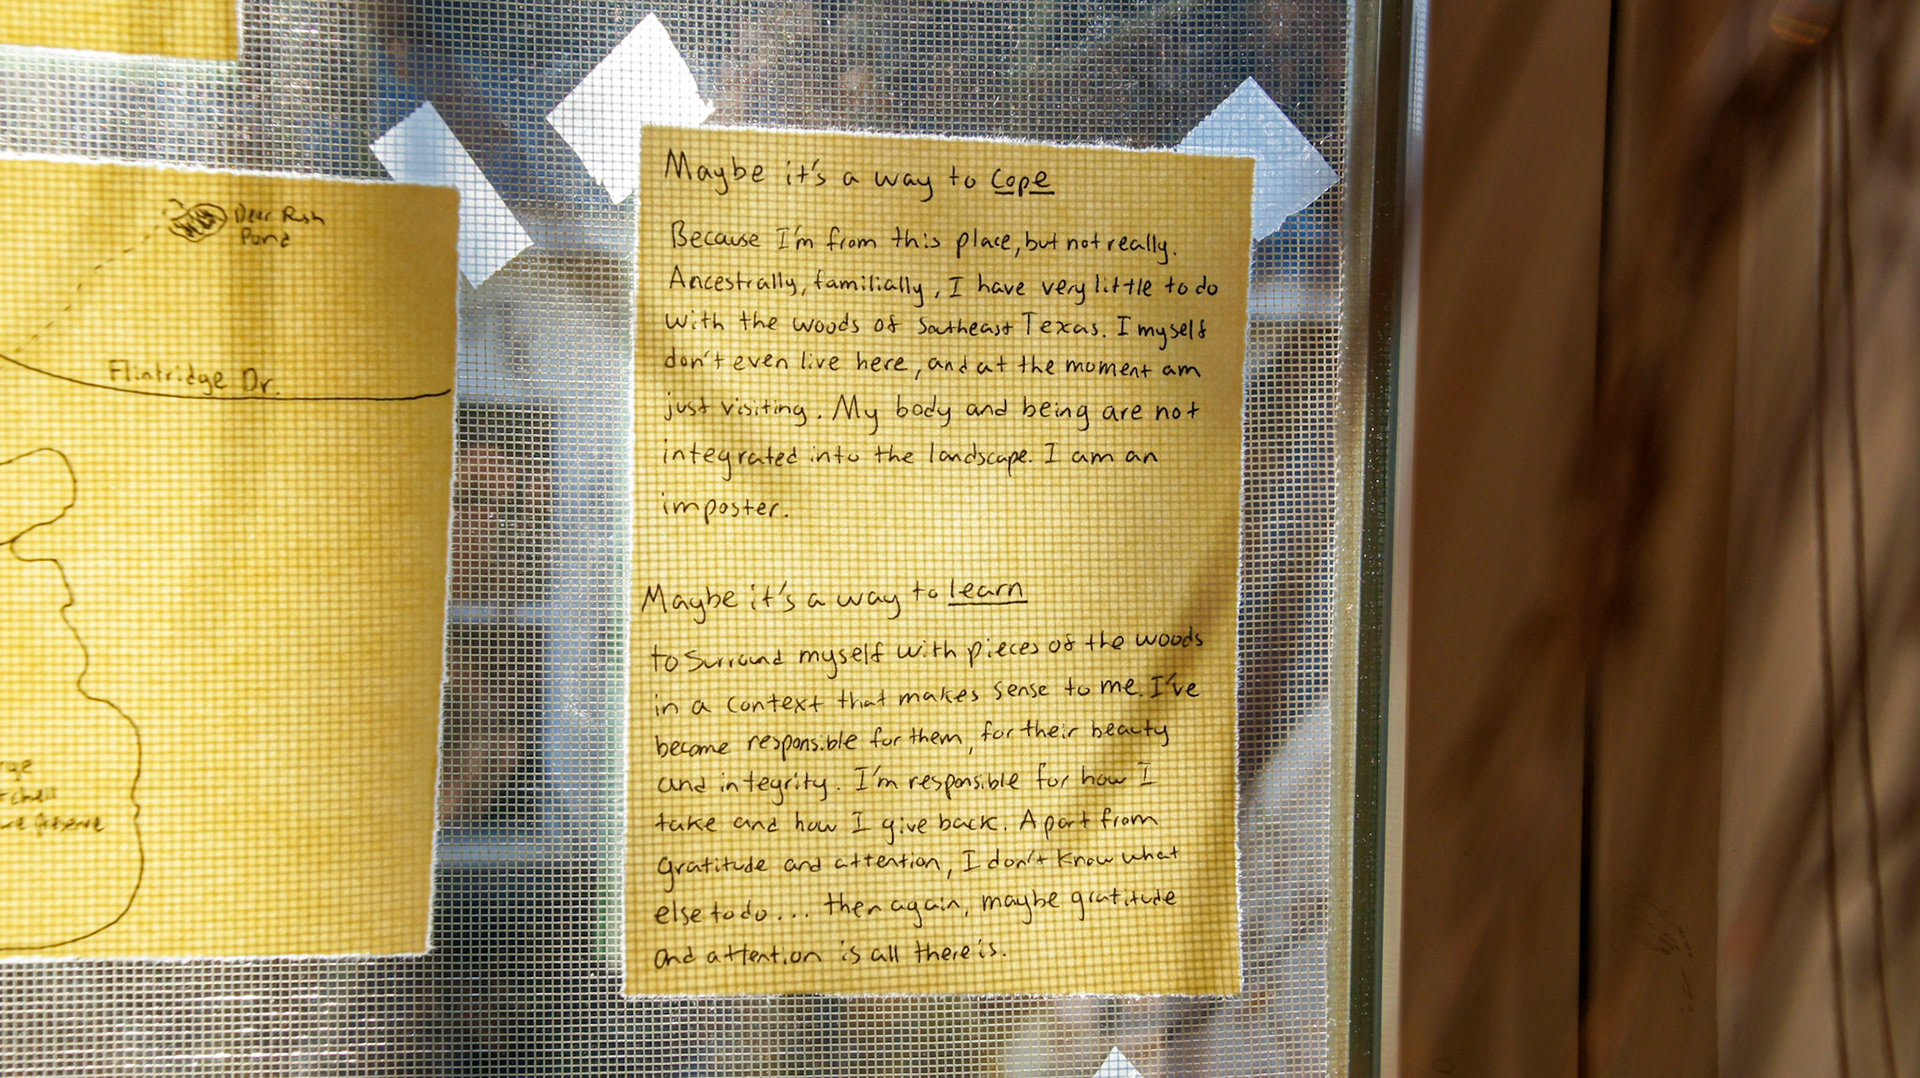 Dear Rush
Pond
Flintridge Dr.
Maybe it's a way to cope
Because I'm from this place, but not really.
Ancestrally, familially, I have very little to do
with the woods of Southeast Texas. I myself
don't even live here, and at the moment am
just visiting. My body and being are not
integrated into the landscape. I am an
imposter.
Maybe it's a way to learn
to surround myself with pieces of the woods
in a context that makes sense to me. I've
become responsible for them, for their beauty
and integrity. I'm responsible for how I
take and how I give back. Apart from
gratitude and attention, I don't know what
else to do... then again, maybe gratitude
and attention is all there is.